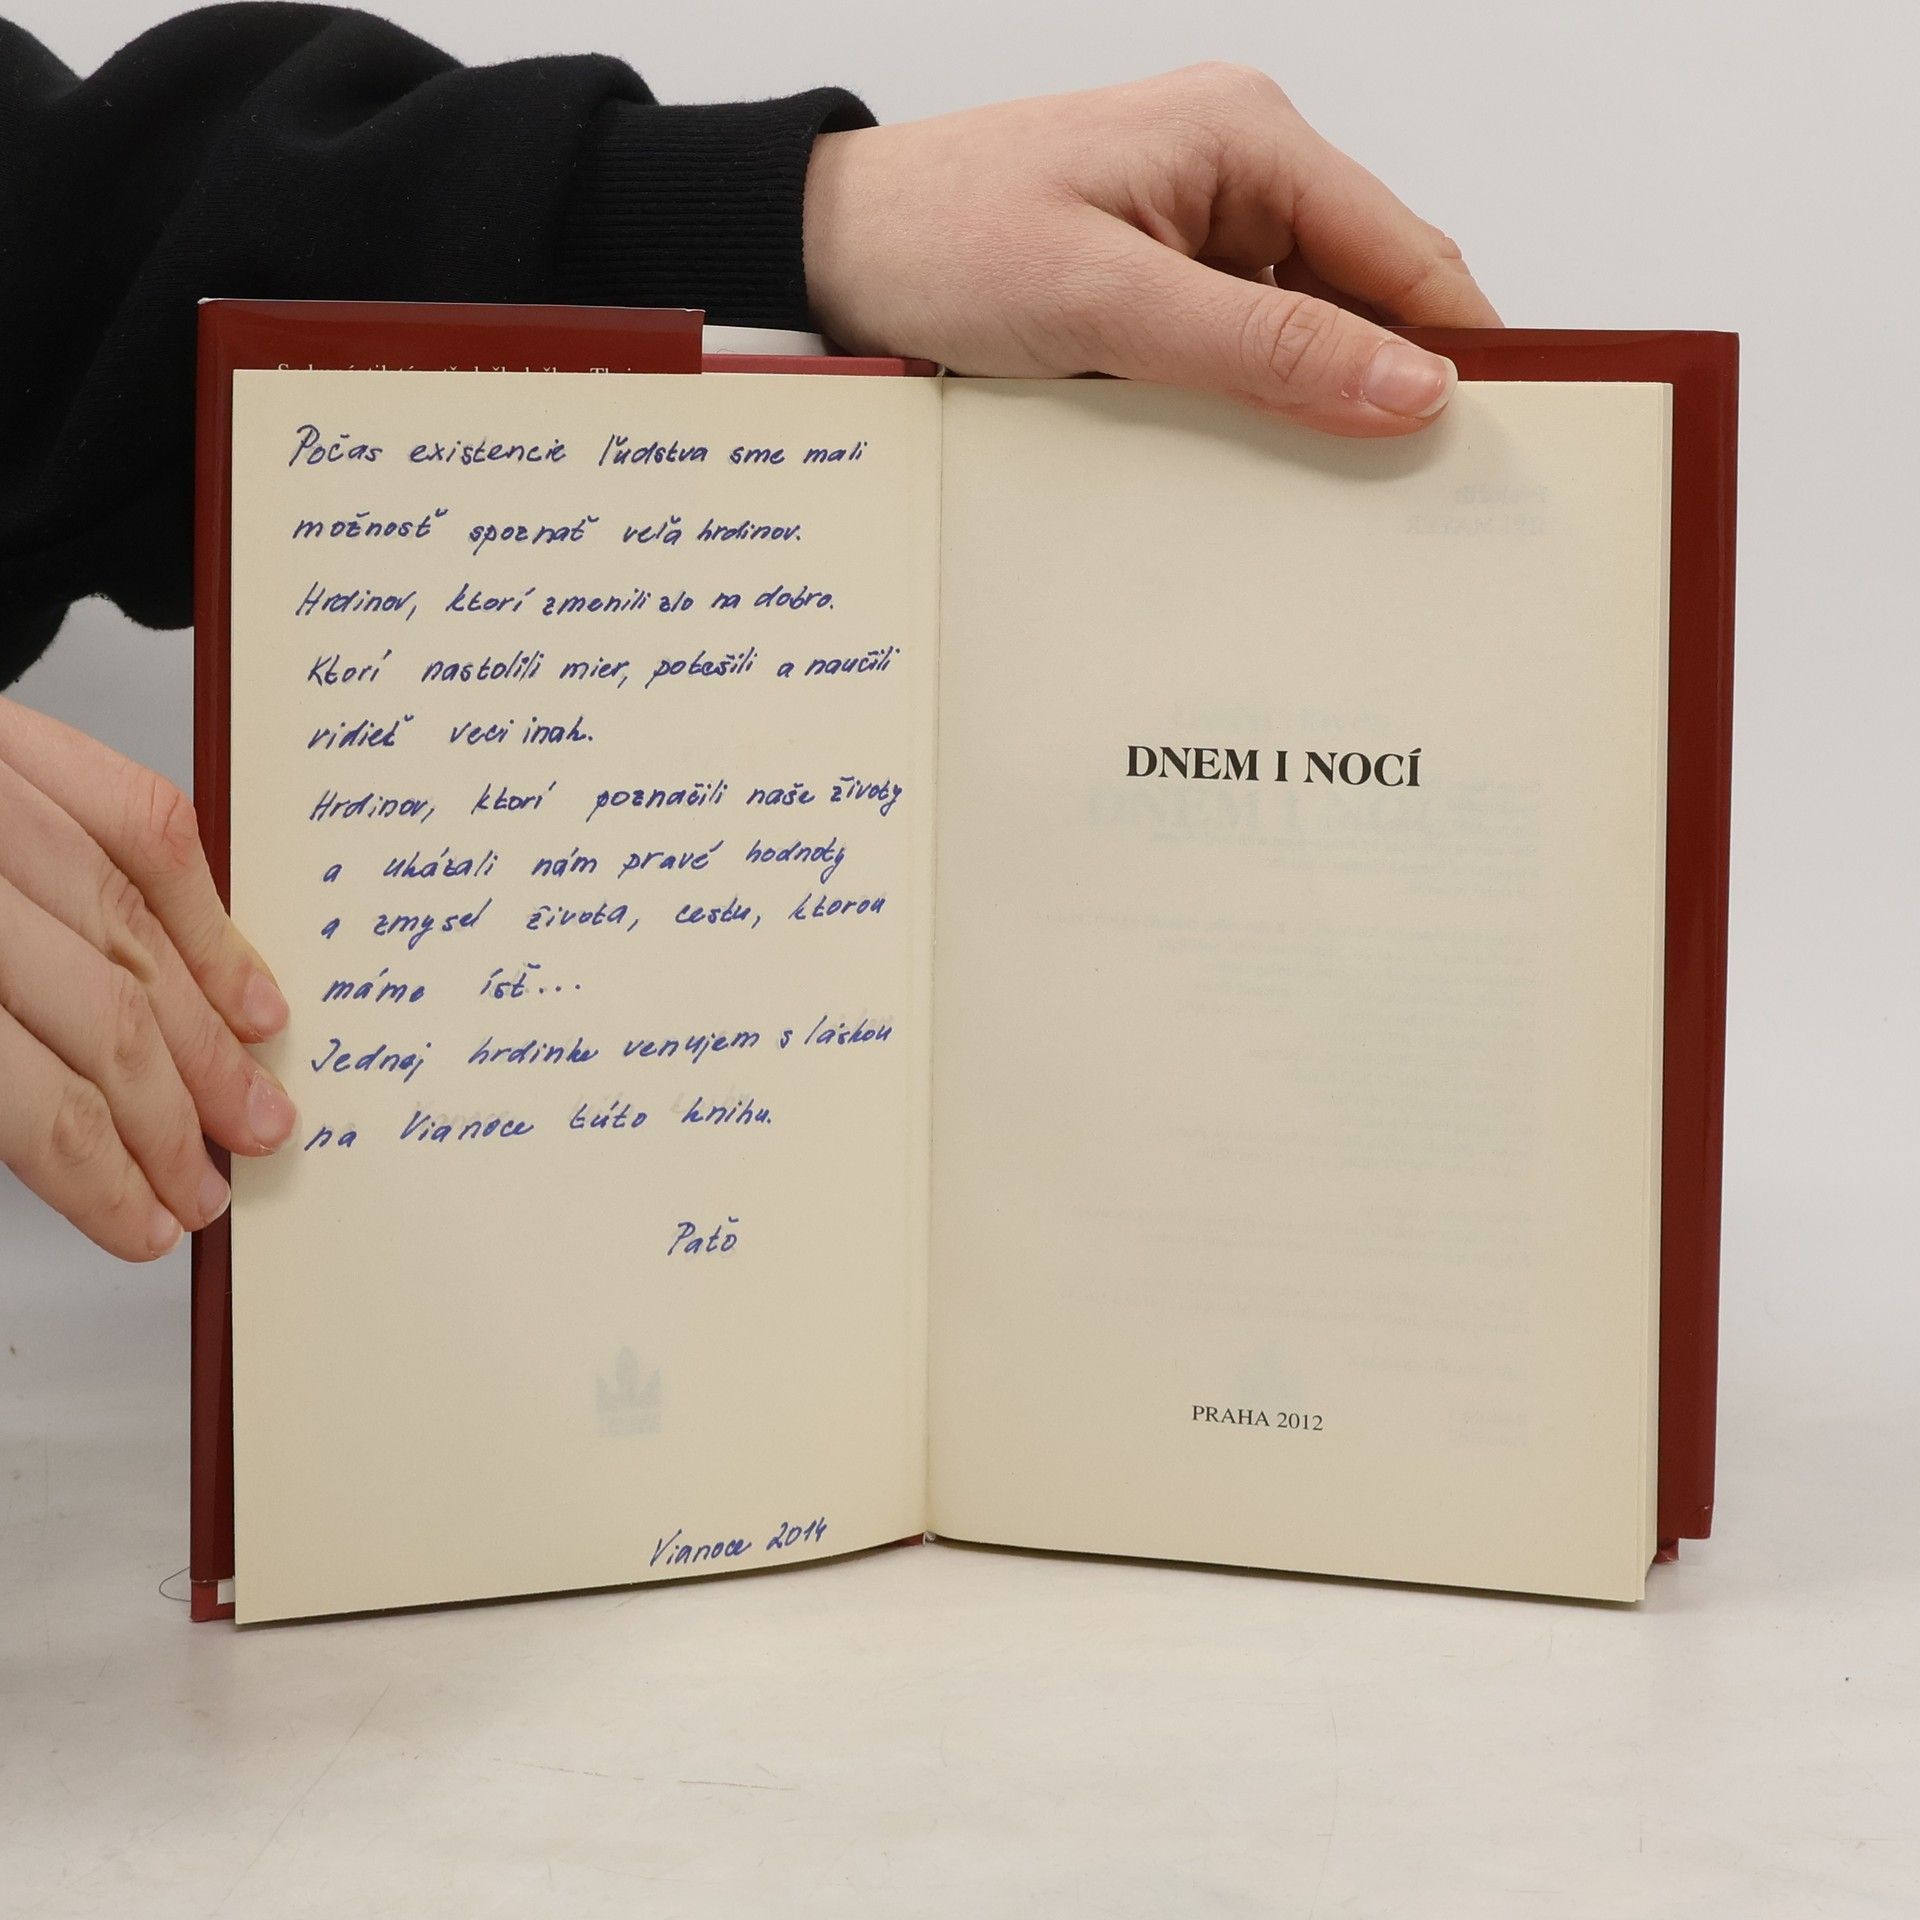 Počas existencie ľudstva sme mali
možnosť spoznať veľa hrdinov.
Hrdinov, ktorí zmenili zlo na dobro.
Ktorí nastolili mier, potešili a naučili
vidieť veci inak.
Hrdinov, ktorí poznačili naše životy
a ukázali nám pravé hodnoty
a zmysel života, cestu, ktorou
máme ísť...
Jednej hrdinke venujem s láskou
na Vianoce túto knihu.
Paťo
Vianoce 2014
DNEM I NOCÍ
PRAHA 2012